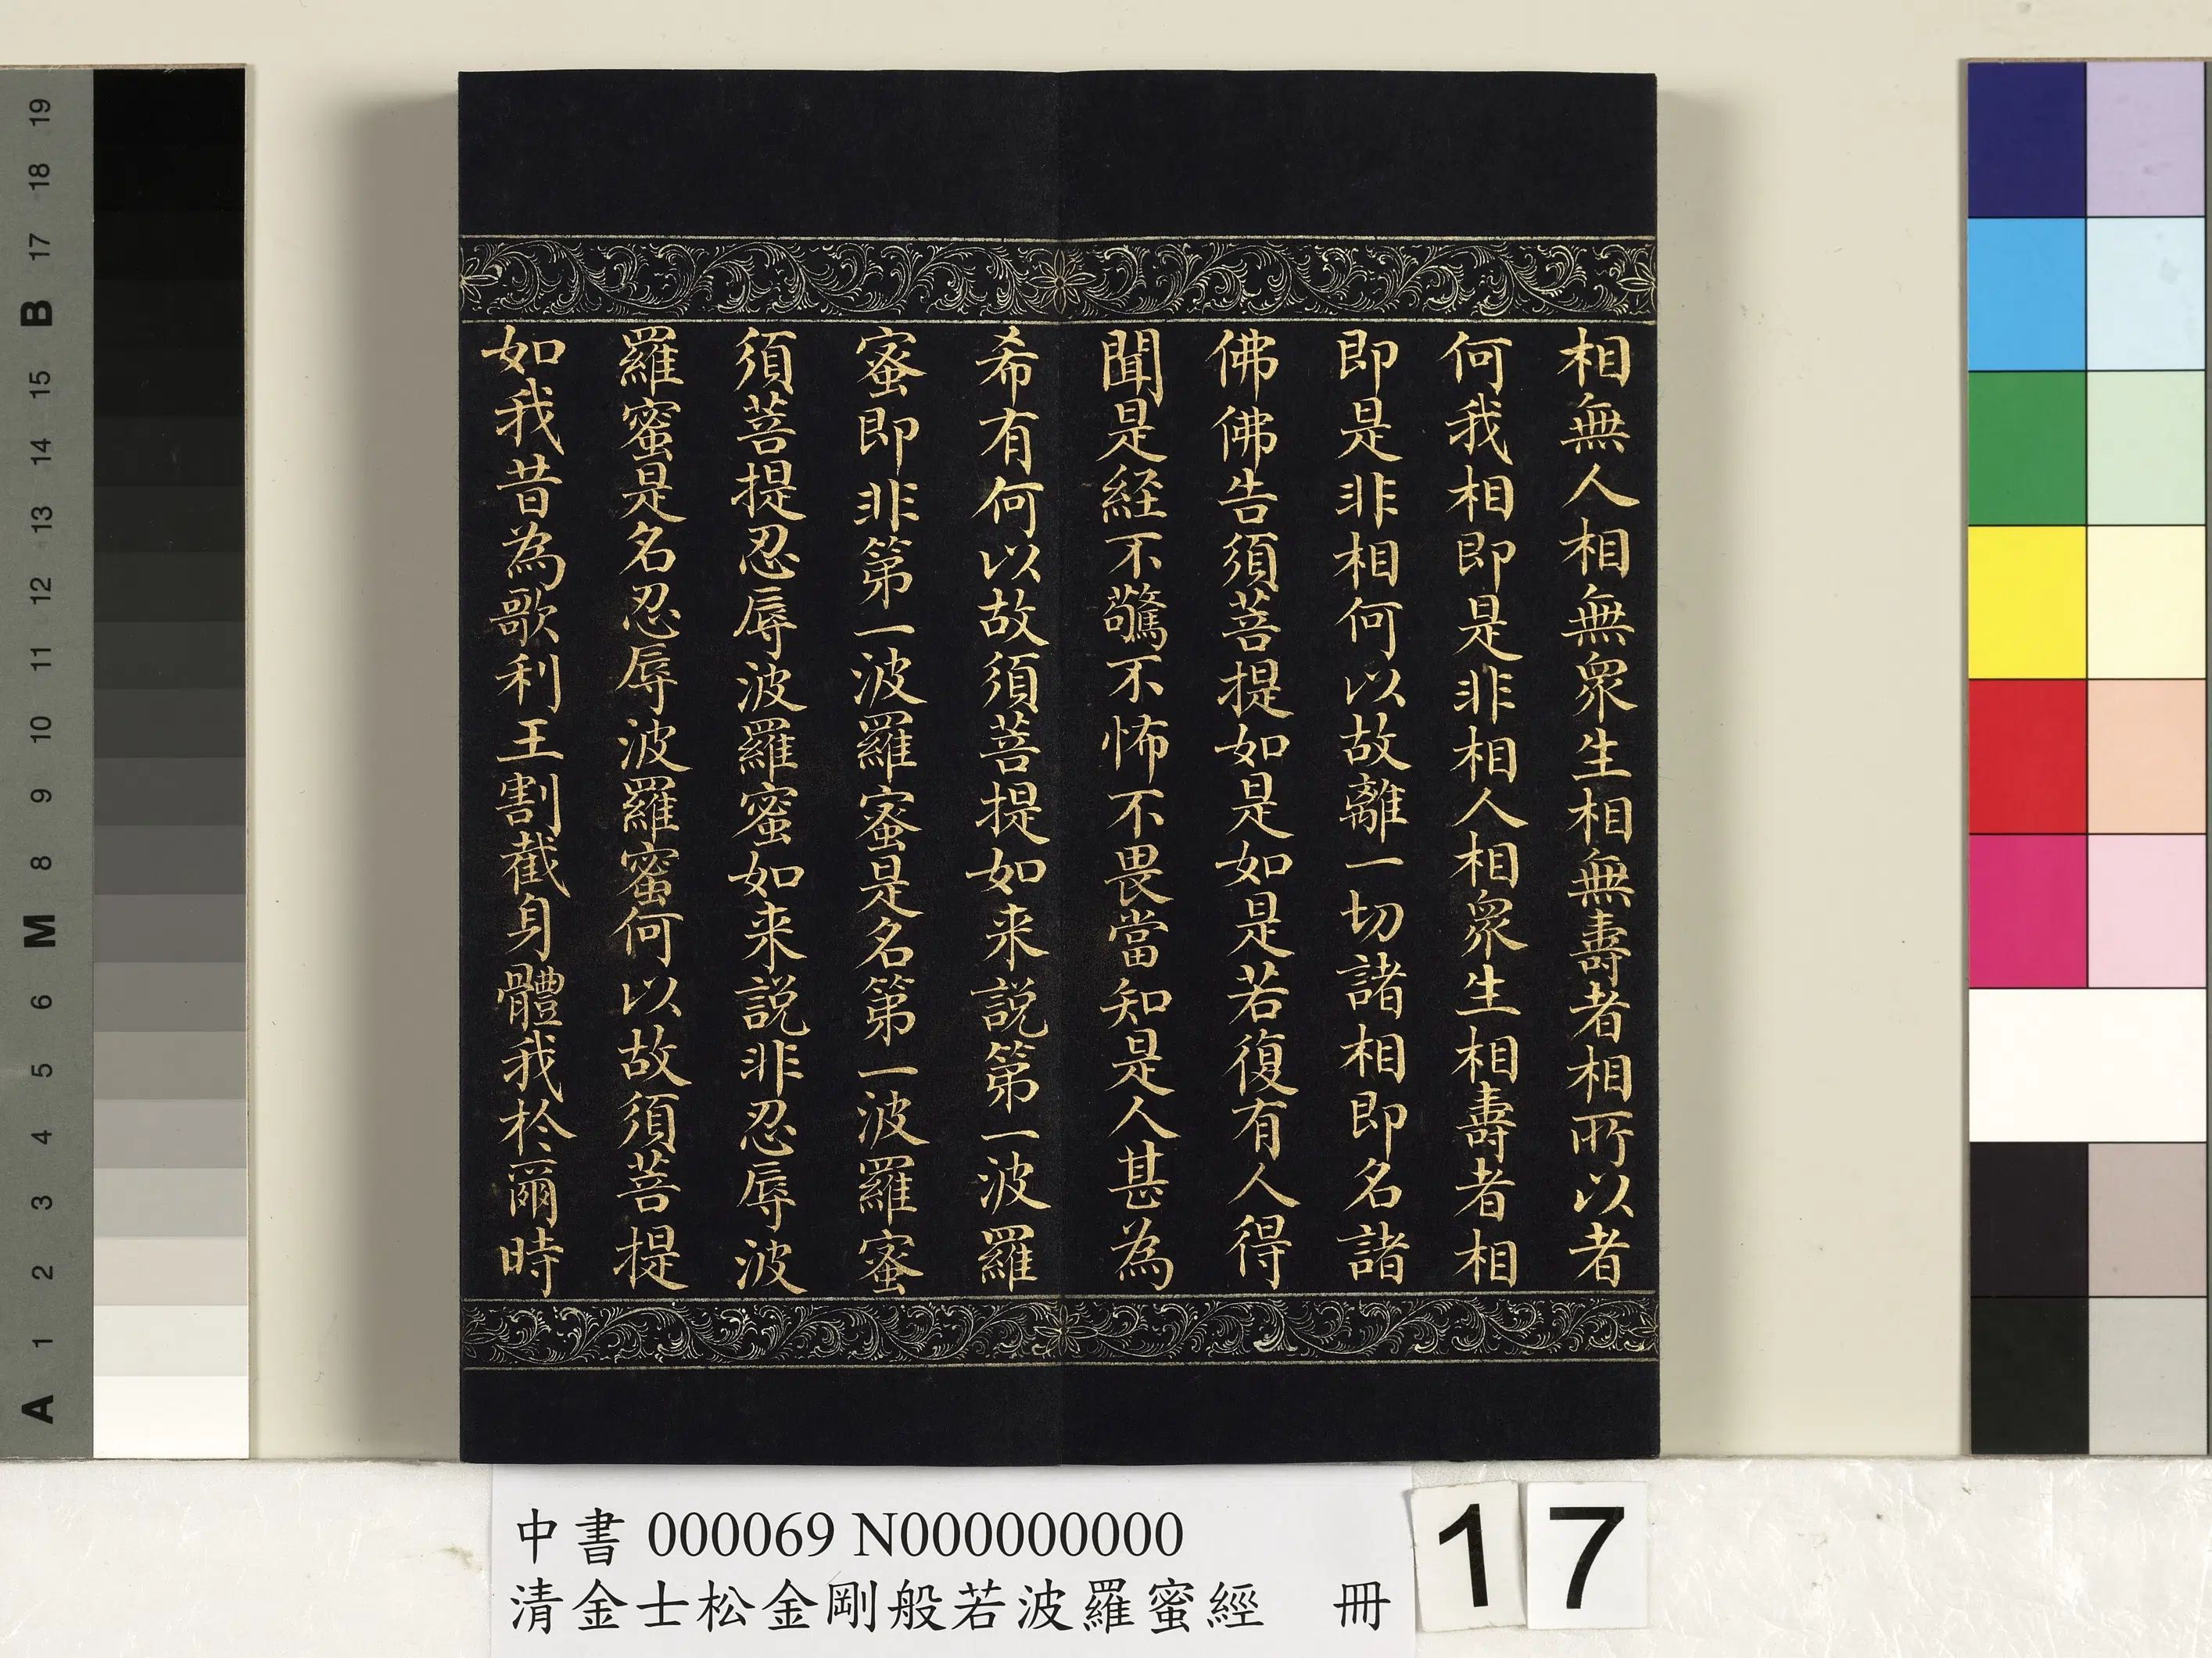 相無人相無眾生相無壽者相所以者
何我相即是非相人相眾生相壽者相
即是非相何以故離一切諸相即名諸
佛佛告須菩提如是如是若復有人得
聞是経不驚不怖不畏當知是人甚為
希有何以故須菩提如来説第一波羅
蜜即非第一波羅蜜是名第一波羅蜜
須菩提忍辱波羅蜜如来説非忍辱波
羅蜜是名忍辱波羅蜜何以故須菩提
如我昔為歌利王割截身體我於爾時
中書 000069 N000000000
清金士松金剛般若波羅蜜經 冊
17
A 1 2 3 4 5 6 M 8 9 10 11 12 13 14 15 B 17 18 19